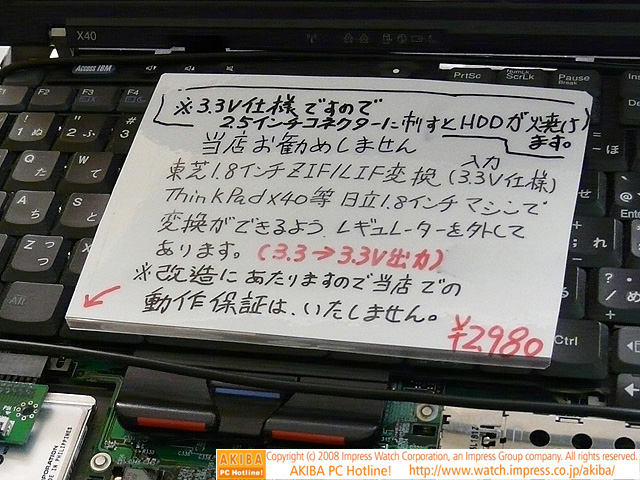 X40
Access IBM
PrtSc
NumLk
ScrLk
Pause
Break
F2
F3
F4
※3.3V仕様ですので
2.5インチコネクターに刺すとHDDが焼けます。
当店お勧めしません
東芝1.8インチZIF/LIF変換(3.3V仕様)
入力
ThinkPadX40等 日立1.8インチマシンで
変換ができるよう、レギュレーターを外して
あります。(3.3→3.3V出力)
※改造にあたりますので当店での
動作保証は、いたしません。
¥2980
Alt
Ctrl
AKIBA
PC Hotline!
Copyright (c) 2008 Impress Watch Corporation, an Impress Group company. All rights reserved.
AKIBA PC Hotline! http://www.watch.impress.co.jp/akiba/